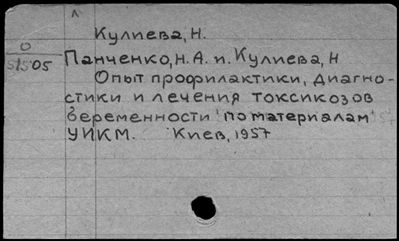 Кулиева, Н.
0
51505
Панченко, Н.А. и Кулиева, Н
Опыт профилактики, диагно-
стики и лечения токсикозов
беременности "по материалам"
УИКМ. Киев, 1957